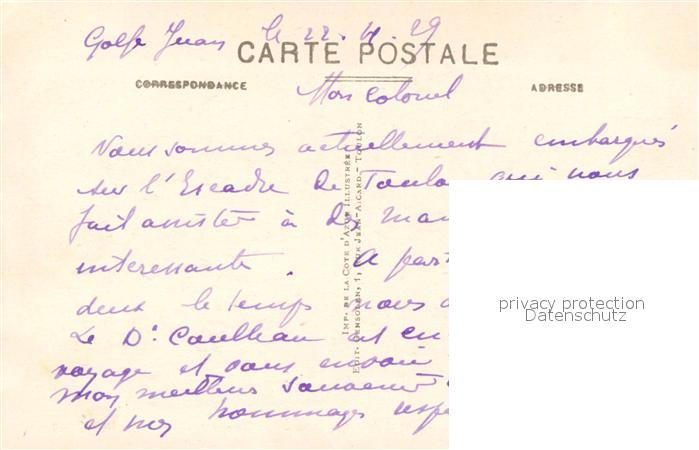 Golfe Juan le 22. 4. 29
CARTE POSTALE
CORRESPONDANCE
ADRESSE
Mon Colonel
Nous sommes actuellement embarqués
sur l'Escadre de Toulon qui nous
fait assister à des
interessante. A part
le temps nous
Le Dr est en
voyage et vous envoie
mon meilleur souvenir
et nos hommages
IMP. DE LA COTE D'AZUR ILLUSTRÉE
EDIT. BENSOLEN, 1, RUE JEAN-AICARD - TOULON
privacy protection
Datenschutz